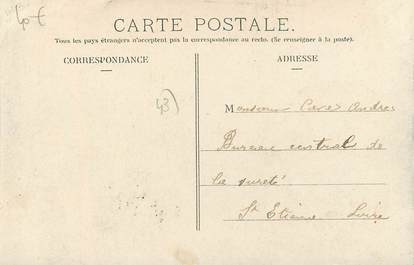 40 €
CARTE POSTALE.
Tous les pays étrangers n'acceptent pas la correspondance au recto. (Se renseigner à la poste).
CORRESPONDANCE
ADRESSE
43)
Monsieur Cave Andre
Bureau central de
la sureté
St Etienne Loire